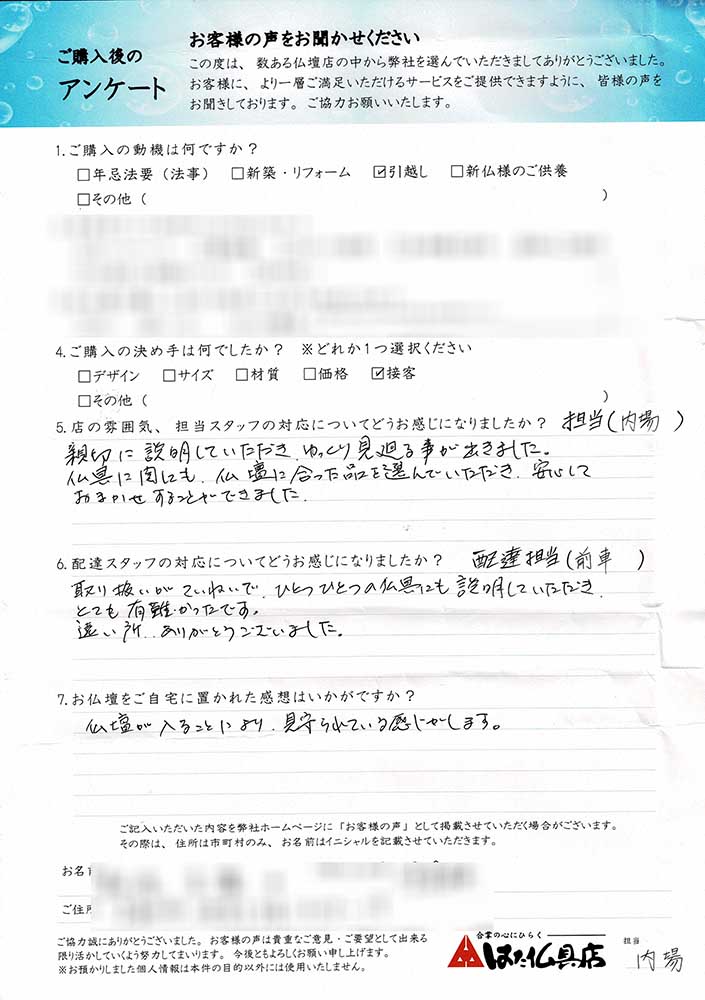 ご購入後の
アンケート
お客様の声をお聞かせください
この度は、数ある仏壇店の中から弊社を選んでいただきましてありがとうございました。
お客様に、より一層ご満足いただけるサービスをご提供できますように、皆様の声を
お聞きしております。ご協力お願いいたします。
1.ご購入の動機は何ですか？
□年忌法要（法事） □新築・リフォーム ☑引越し □新仏様のご供養
□その他（ ）
4.ご購入の決め手は何でしたか？ ※どれか1つ選択ください
□デザイン □サイズ □材質 □価格 ☑接客
□その他（ ）
5.店の雰囲気、担当スタッフの対応についてどうお感じになりましたか？ 担当(内場 )
親切に説明していただき、ゆっくり見廻る事が出きました。
仏具に関にも、仏壇に合った品を選んでいただき、安心して
おまかせすることができました.
6.配達スタッフの対応についてどうお感じになりましたか？ 配達担当(前車 )
取り扱いがていねいで、ひとつひとつの仏具にも説明していただき、
とても有難かったです。
遠い所、ありがとうございました。
7.お仏壇をご自宅に置かれた感想はいかがですか？
仏壇が入ることにより、見守られている感じがします。
ご記入いただいた内容を弊社ホームページに「お客様の声」として掲載させていただく場合がございます。
その際は、住所は市町村のみ、お名前はイニシャルを記載させていただきます。
お名前
ご住所
ご協力誠にありがとうございました。お客様の声は貴重なご意見・ご要望として出来る
限り活かしていくよう努力してまいります。今後ともよろしくお願い申し上げます。
※お預かりしました個人情報は本件の目的以外には使用いたしません。
合掌の心にひらく
はた仏具店
担当
内場